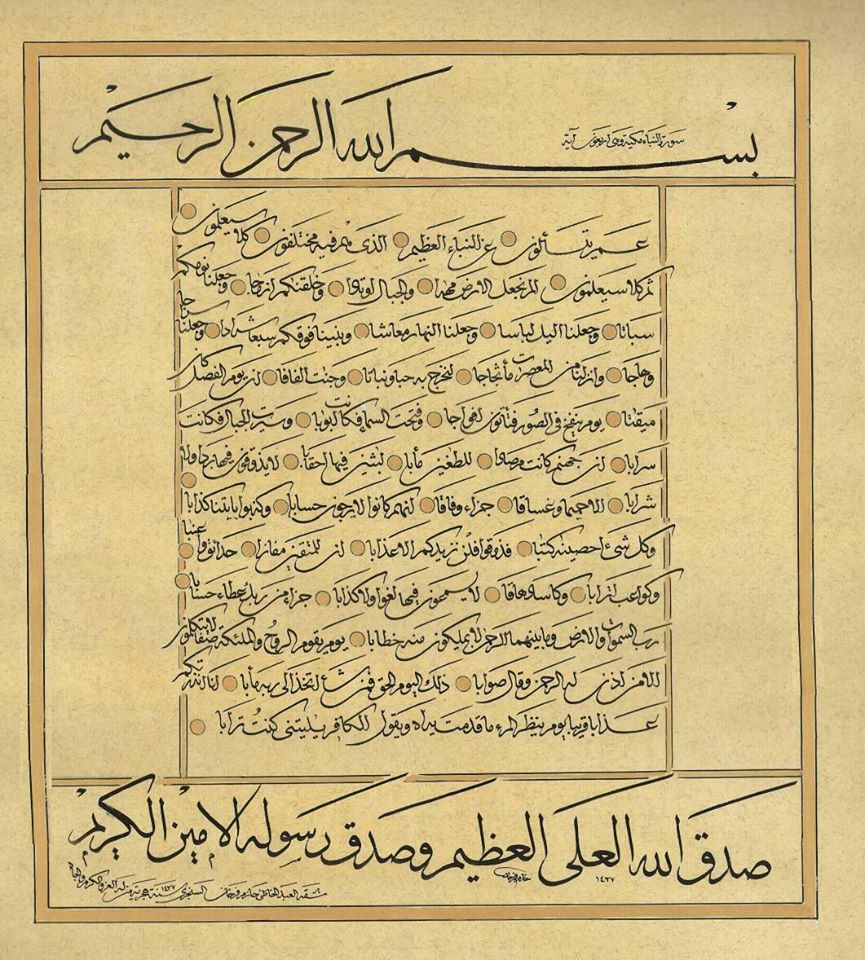 بسم الله الرحمن الرحيم
سورة النباء مكية وهي اربعون آية
عم يتسألون عن النباء العظيم الذى هم فيه مختلفون كلا سيعلمون
ثم كلا سيعلمون الم نجعل الارض مهدا والجبال اوتادا وخلقنكم ازواجا وجعلنا نومكم
سباتا وجعلنا اليل لباسا وجعلنا النهار معاشا وبنينا فوقكم سبعا شدادا وجعلنا سراجا
وهاجا وانزلنا من المعصرت مأ ثجاجا لنخرج به حبا ونباتا وجنت الفافا ان يوم الفصل كان
ميقتا يوم ينفخ فى الصور فتأتون افواجا وفتحت السما فكانت ابوبا وسيرت الجبال فكانت
سرابا ان جهنم كانت مرصادا للطغين مأبا لبثين فيها احقابا لا يذوقون فيها بردا ولا
شرابا الا حميما وغساقا جزاء وفاقا انهم كانوا لا يرجون حسابا وكذبوا بايتنا كذابا
وكل شئ احصينه كتبا فذوقوا فلن نزيدكم الا عذابا ان للمتقين مفازا حدائق واعنبا
وكواعب اترابا وكاسا دهاقا لا يسمعون فيها لغوا ولا كذابا جزاء من ربك عطاء حسابا
رب السموات والارض وما بينهما الرحمن لا يملكون منه خطابا يوم يقوم الروح والملئكة صفا لا يتكلمون
الا من اذن له الرحمن وقال صوابا ذلك اليوم الحق فمن شأ اتخذ الى ربه مأبا انا انذرنكم
عذابا قريبا يوم ينظر المرء ما قدمت يداه ويقول الكافر يليتنى كنت ترابا
صدق الله العلى العظيم وصدق رسوله الامين الكريم
١٤٣٧
مشقه العبد الخاطئ السنجرى سنة ١٤٣٧